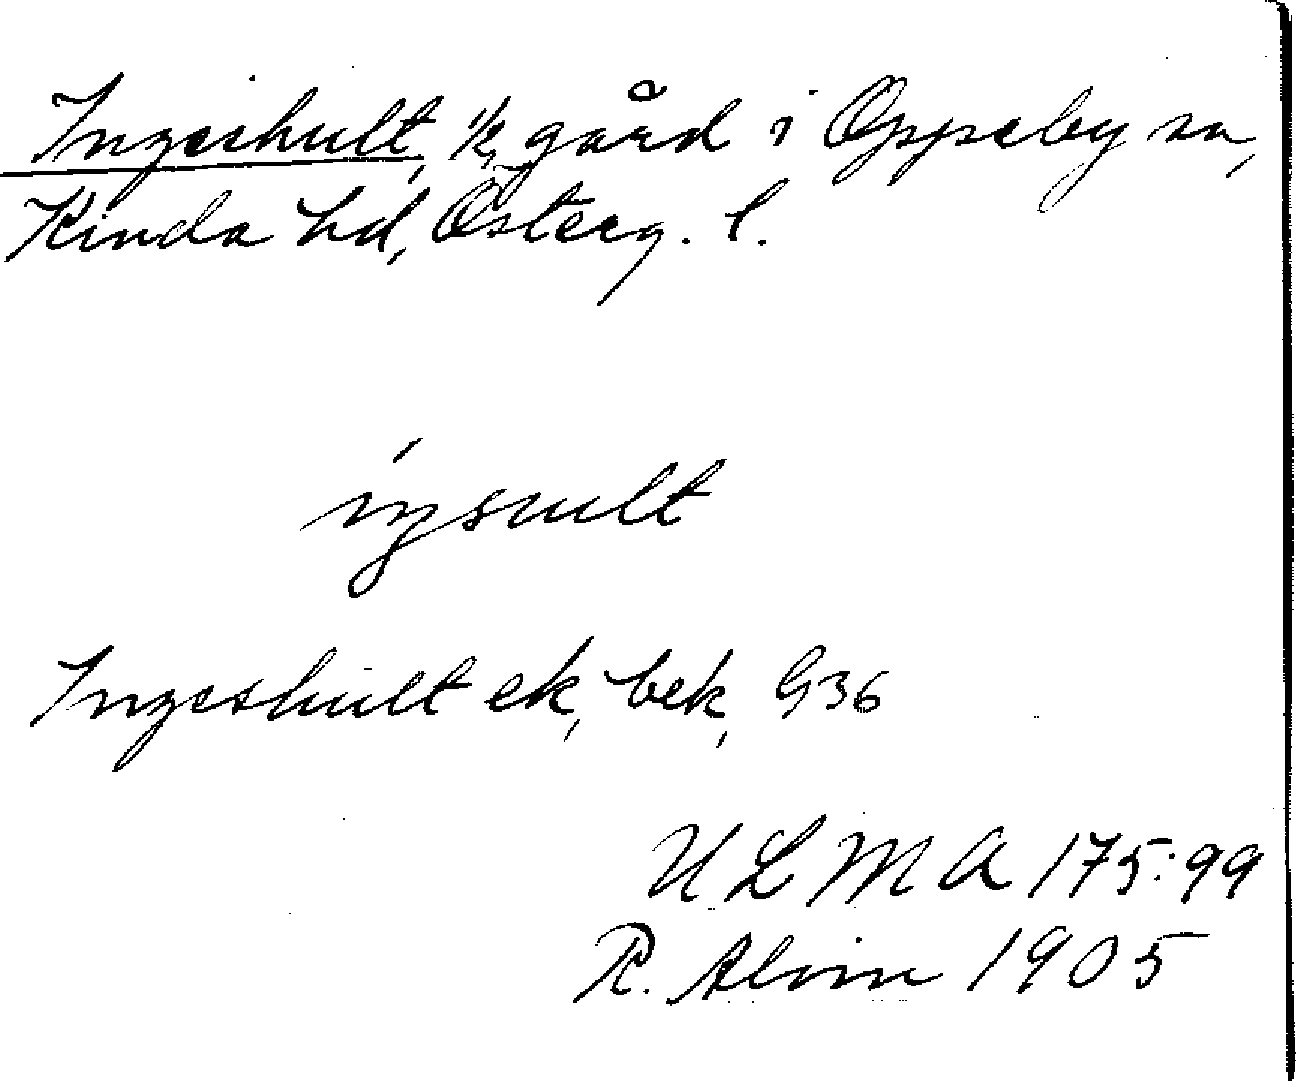 Ingeshult, 1/2 gård i Oppeby sn,
Kinda hd, Österg. l.
íŋsult
Ingeshult ek, bek, G36
ULMA 175:99
R. Alvin 1905